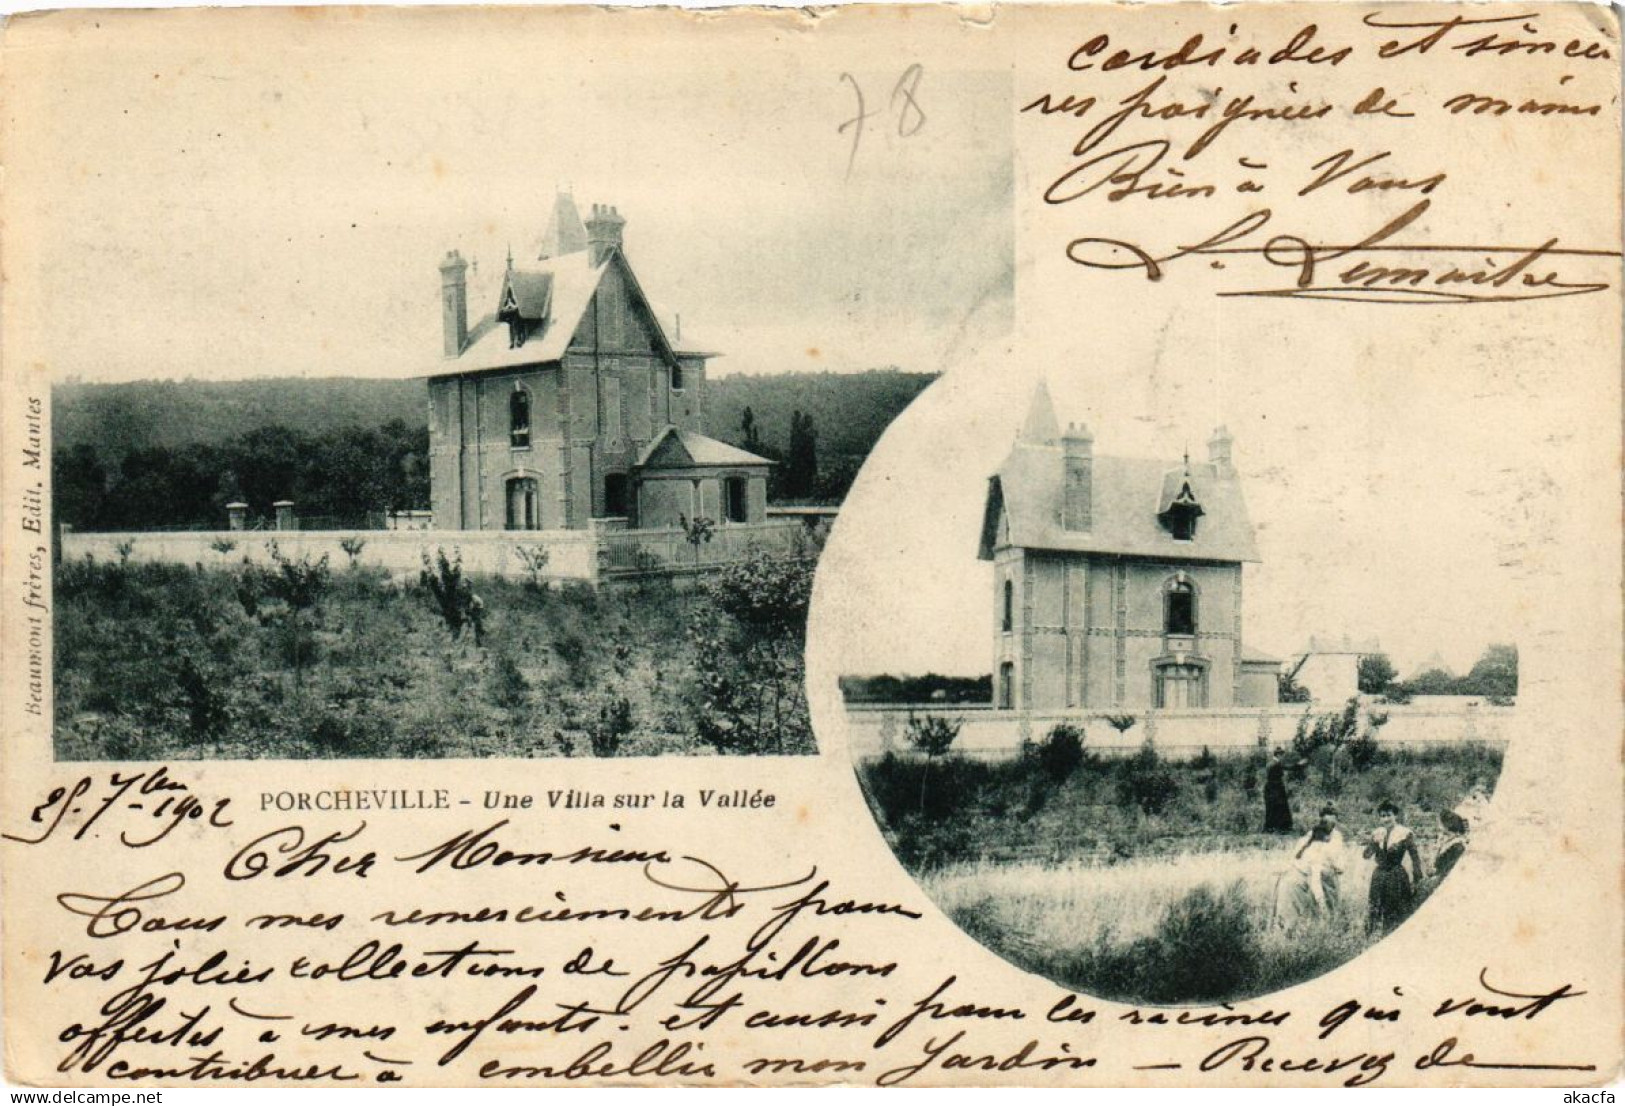 78
Beaumont frères, Edit. Mantes
PORCHEVILLE - Une Villa sur la Vallée
25. 7bre 1902
Cher Monsieur
Tous mes remerciements pour
vos jolies collections de papillons
offertes à mes enfants. et aussi pour les racines qui vont
contribuer à embellir mon Jardin — Recevez de
cordiales et sincè
res poignées de mains
Bien à Vous
L. Lemaitre
akacfa